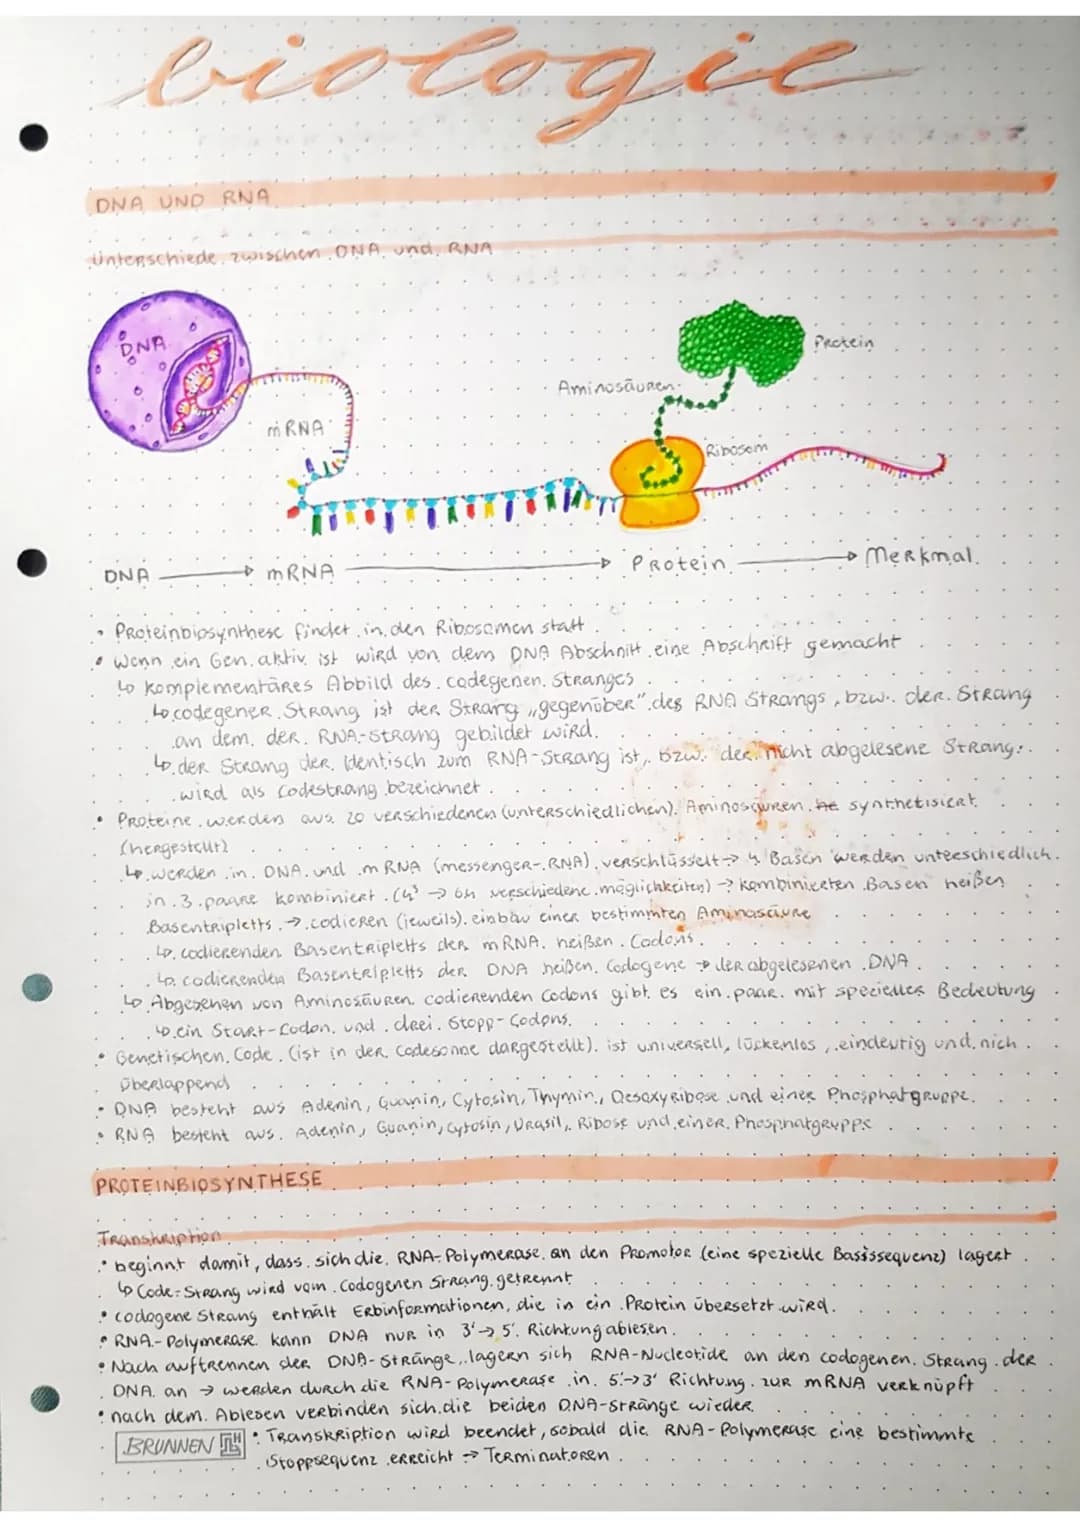 biologie
DNA UND RNA
Unterschiede zwischen DNA und RNA
DNA
Protein
Aminosäuren
mRNA
Ribosom
DNA → mRNA → Protein → Merkmal
• Proteinbiosynthese findet in den Ribosomen statt
• Wenn ein Gen aktiv ist wird von dem DNA Abschnitt eine Abschrift gemacht
↳ komplementäres Abbild des codegenen Stranges
↳ codegener Strang ist der Strang „gegenüber" des RNA Strangs, bzw. der Strang
an dem der RNA-Strang gebildet wird.
↳ der Strang der identisch zum RNA-Strang ist, bzw. der nicht abgelesene Strang
wird als Codestrang bezeichnet.
• Proteine werden aus 20 verschiedenen (unterschiedlichen) Aminosäuren he synthetisiert
(hergestellt)
↳ werden in DNA und mRNA (messenger-RNA) verschlüsselt → 4 Basen werden unterschiedlich
in 3 paare kombiniert (4³ → 64 verschiedene möglichkeiten) → kombinierten Basen heißen
Basentripletts → codieren (jeweils) einbau einer bestimmten Aminosäure
↳ codierenden Basentripletts der mRNA heißen Codons.
↳ codierenden Basentripletts der DNA heißen Codogene → der abgelesenen DNA.
↳ Abgesehen von Aminosäuren codierenden Codons gibt es ein paar mit specieller Bedeutung
↳ ein Start-Codon und drei Stopp-Codons.
• Genetischen Code (ist in der Codesonne dargestellt) ist universell, lückenlos, eindeutig und nich
überlappend
• DNA besteht aus Adenin, Guanin, Cytosin, Thymin, Desoxyribose und einer Phosphatgruppe.
• RNA besteht aus Adenin, Guanin, Cytosin, Urasil, Ribose und einer Phosphatgruppe
PROTEINBIOSYNTHESE
Transkription
• beginnt damit, dass sich die RNA-Polymerase an den Promotor (eine spezielle Basissequenz) lagert
↳ Code-Strang wird vom Codogenen Strang getrennt
• codogene Strang enthält Erbinformationen, die in ein Protein übersetzt wird.
• RNA-Polymerase kann DNA nur in 3'→5' Richtung ablesen.
• Nach auftrennen der DNA-Stränge, lagern sich RNA-Nucleotide an den codogenen Strang der
DNA an → werden durch die RNA-Polymerase in 5'→3' Richtung zur mRNA verknüpft
• nach dem Ablesen verbinden sich die beiden DNA-Stränge wieder.
• Transkription wird beendet, sobald die RNA-Polymerase eine bestimmte
Stoppsequenz erreicht → Terminatoren
BRUNNEN